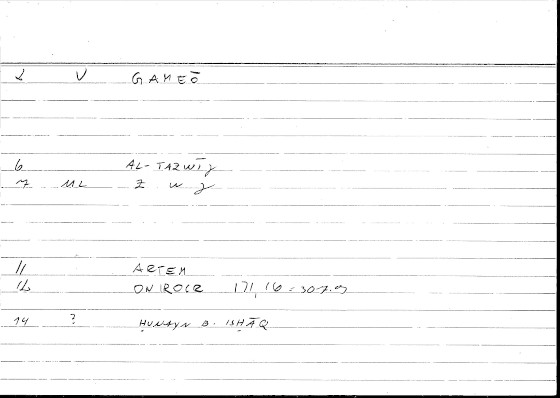 2 V GAMEŌ
6 AL-TAZWĪǧ
7 ML Z W ǧ
11 ARTEM
12 ONIROCR 171,16 = 307.9
14 ? ḤUNAYN B. ISḤĀQ